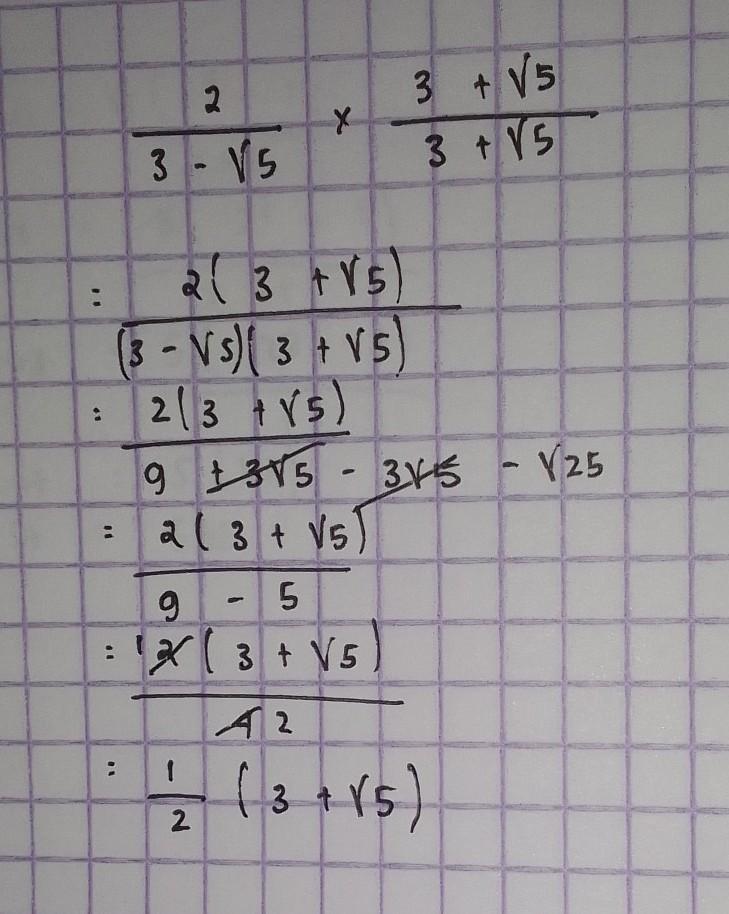 2 / 3 - √5 × 3 + √5 / 3 + √5
: 2( 3 + √5) / (3 - √5)( 3 + √5)
: 2(3 + √5) / 9 + 3√5 - 3√5 - √25
= 2( 3 + √5) / 9 - 5
: 1 2( 3 + √5) / 4 2
: 1 / 2 (3 + √5)